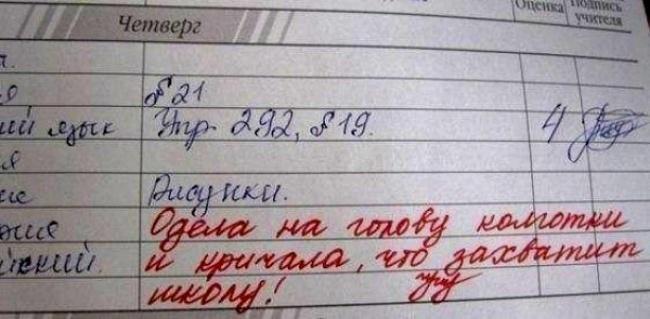 Оценка Подпись учителя
Четверг
§ 21
ий язык Упр. 292, § 19. 4
Рисунки.
Одела на голову колготки
и кричала, что захватит
школу!